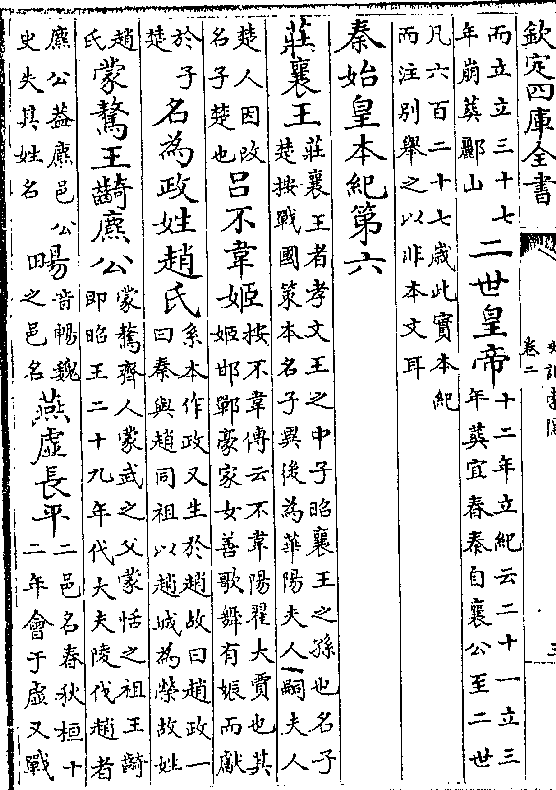 欽定四庫全書
卷二
三
而立立三十七
年崩葬酈山
二世皇帝
十二年立紀云二十一立三
年葬宜春秦自襄公至二世
凡六百二十七歲此實本紀
而注別舉之以非本文耳
秦始皇本紀第六
莊襄王
莊襄王者孝文王之中子昭襄王之孫也名子
楚按戰國策本名子異後為華陽夫人嗣夫人
楚人因改
名子楚也
呂不韋姬
按不韋傳云不韋陽翟大賈也其
姬邯鄲豪家女善歌舞有娠而獻
於子
楚
名為政姓趙氏
系本作政又生於趙故曰趙政一
曰秦與趙同祖以趙城為榮故姓
趙
氏
蒙驁王齮麃公
蒙驁齊人蒙武之父蒙恬之祖王齮
即昭王二十九年代大夫陵伐趙者
麃公蓋麃邑公
史失其姓名
畼
音暢魏
之邑名
燕虛長平
二邑名春秋桓十
二年會于虛又戰